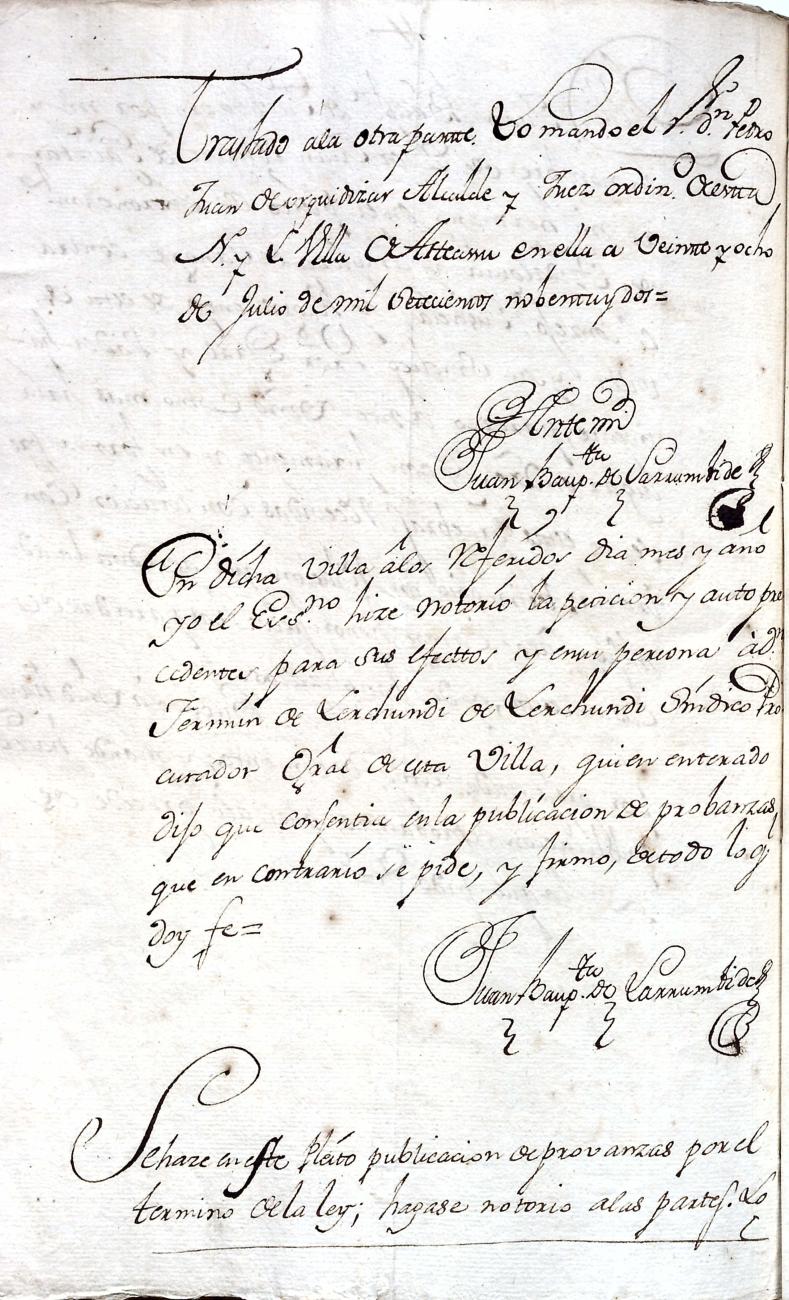 Traslado ala otra partte. Lo mando el S.r d.n Pedro
Juan de orquidizar Alcalde y Juez ordin.o de estta
N. y L. Villa de Atteaun en ella a Veintte y ocho
de Julio de mil settecientos nobenta y dos=
Ante mi
Juan Baup.ta de Larrumbide
En dicha Villa álos Referidos dia mes y año
yo el Ess.no hize notorio la peticion y auto pre
cedentes para sus efecttos y en su persona à d.n
Fermin de Lerchundi de Lerchundi Síndico Pro
curador Gral de esta Villa, quien enterado
dijo que consentia en la publicacion de probanzas,
que en contrarío se pide, y firmo, de todo lo q.l
doy fe=
Juan Baup.ta de Larrumbide
Se haze en este Pleito publicacion de provanzas por el
termino de la ley; hagase notorio a las partes. Lo